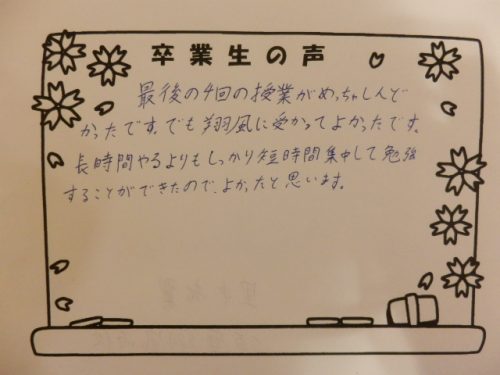 卒業生の声
最後の4回の授業がめっちゃしんど
かったです。でも翔風に受かってよかったです。
長時間やるよりもしっかり短時間集中して勉強
することができたので、よかったと思います。